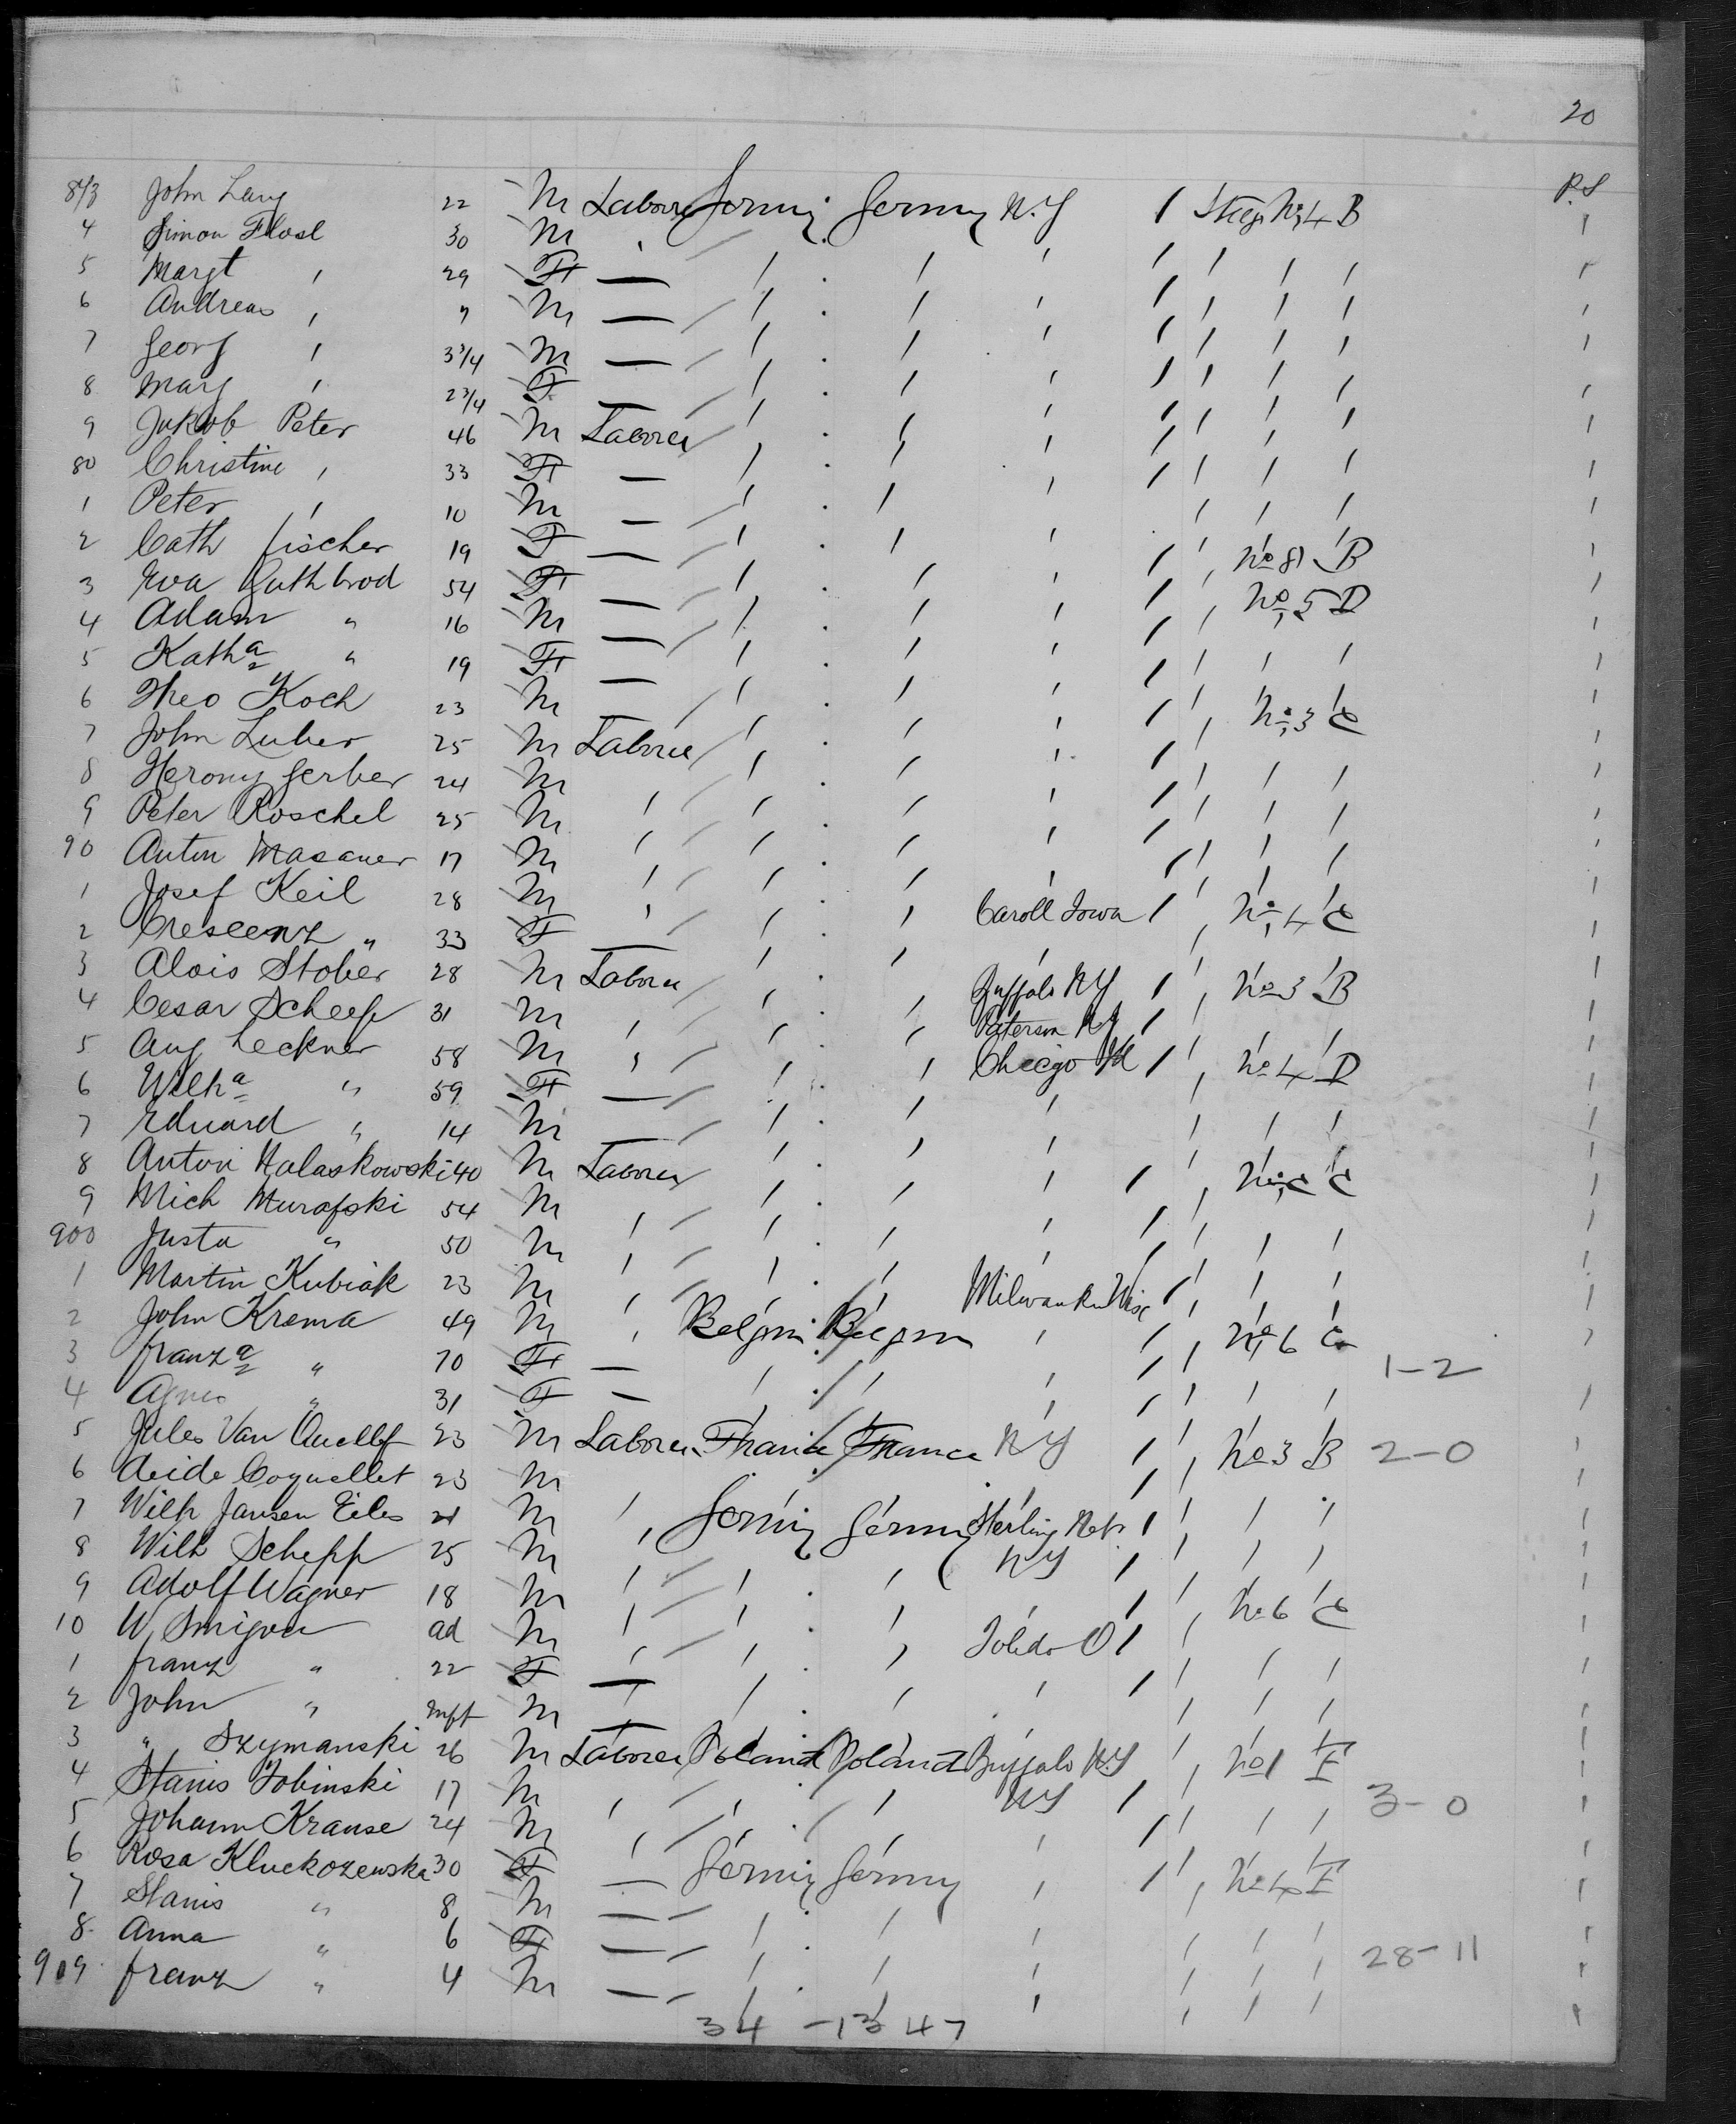 20
P.S
873 John Lang 22 M Laborer Germy Germy N.Y / Stege No 4 B
4 Simon Flosl 30 M
5 Margt " 29 F —
6 Andreas " M —
7 Georg " 3 3/4 M —
8 Marg " 2 3/4 F —
9 Jakob Peter 46 M Laborer
80 Christine " 33 F —
1 Peter " 10 M —
2 Cath Fischer 19 F — No 81 B
3 Eva Guthbrod 54 F — No 5 D
4 Adam " 16 M —
5 Katha " 19 F —
6 Theo Koch 23 M — No 3 C
7 John Luber 25 M Laborer
8 Herony Gerber 24 M
9 Peter Roschel 25 M
90 Anton Masauer 17 M
1 Josef Keil 28 M Caroll Iowa / No 4 C
2 Crescenz " 33 F —
3 Alois Stober 28 M Laborer Buffalo NY / No 3 B
4 Cesar Scheep 31 M Paterson NJ /
5 Aug Leckner 58 M Chicago Ill / No 4 D
6 Wilha " 59 F —
7 Eduard " 14 M —
8 Anton Halaskowski 40 M Laborer / No C C
9 Mich Murafski 54 M
900 Justa " 50 M
1 Martin Kubiak 23 M Milwaukee Wisc
2 John Krema 49 M Belgm Belgm No 6 C
3 Franza " 70 F — 1-2
4 Agnes " 31 F —
5 Jules Van 23 M Laborer France France NY / No 3 B 2-0
6 Coquellet 23 M
7 Wilh Jansen Eiles 21 M Germy Germy Sterling Neb /
8 Wilh Schepp 25 M NY /
9 Adolf Wagner 18 M No 6 C
10 W Smigva ad M Toledo O /
1 Franz " 22 F —
2 John " Inft M —
3 " Szymanski 26 M Laborer Poland Poland Buffalo N.Y No 1 E
4 Stanis Tobinski 17 M NY / 3-0
5 Johann Krause 24 M
6 Rosa Kluckozewska 30 F — Germy Germy No 4 E
7 Stanis " 8 M —
8 Anna " 6 F — 28-11
919 Franz " 4 M —
34 -13 47